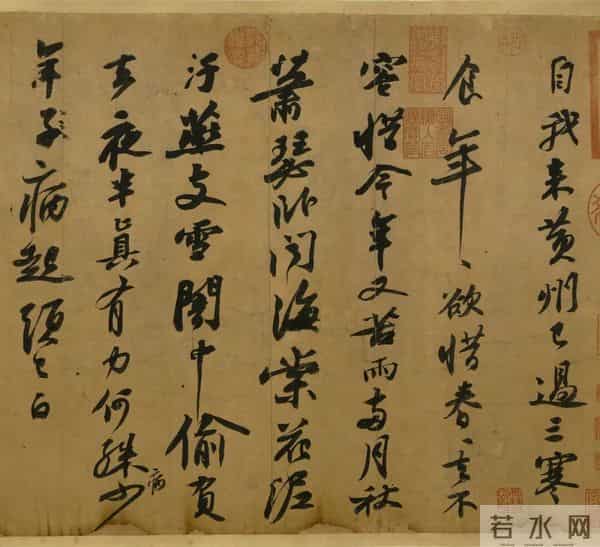 自我來黃州已過三寒
食年〻欲惜春〻去不
容惜今年又苦雨兩月秋
蕭瑟卧聞海棠花泥
汙燕支雪闇中偷負
去夜半真有力何殊病少
年子病起頭已白
若水网